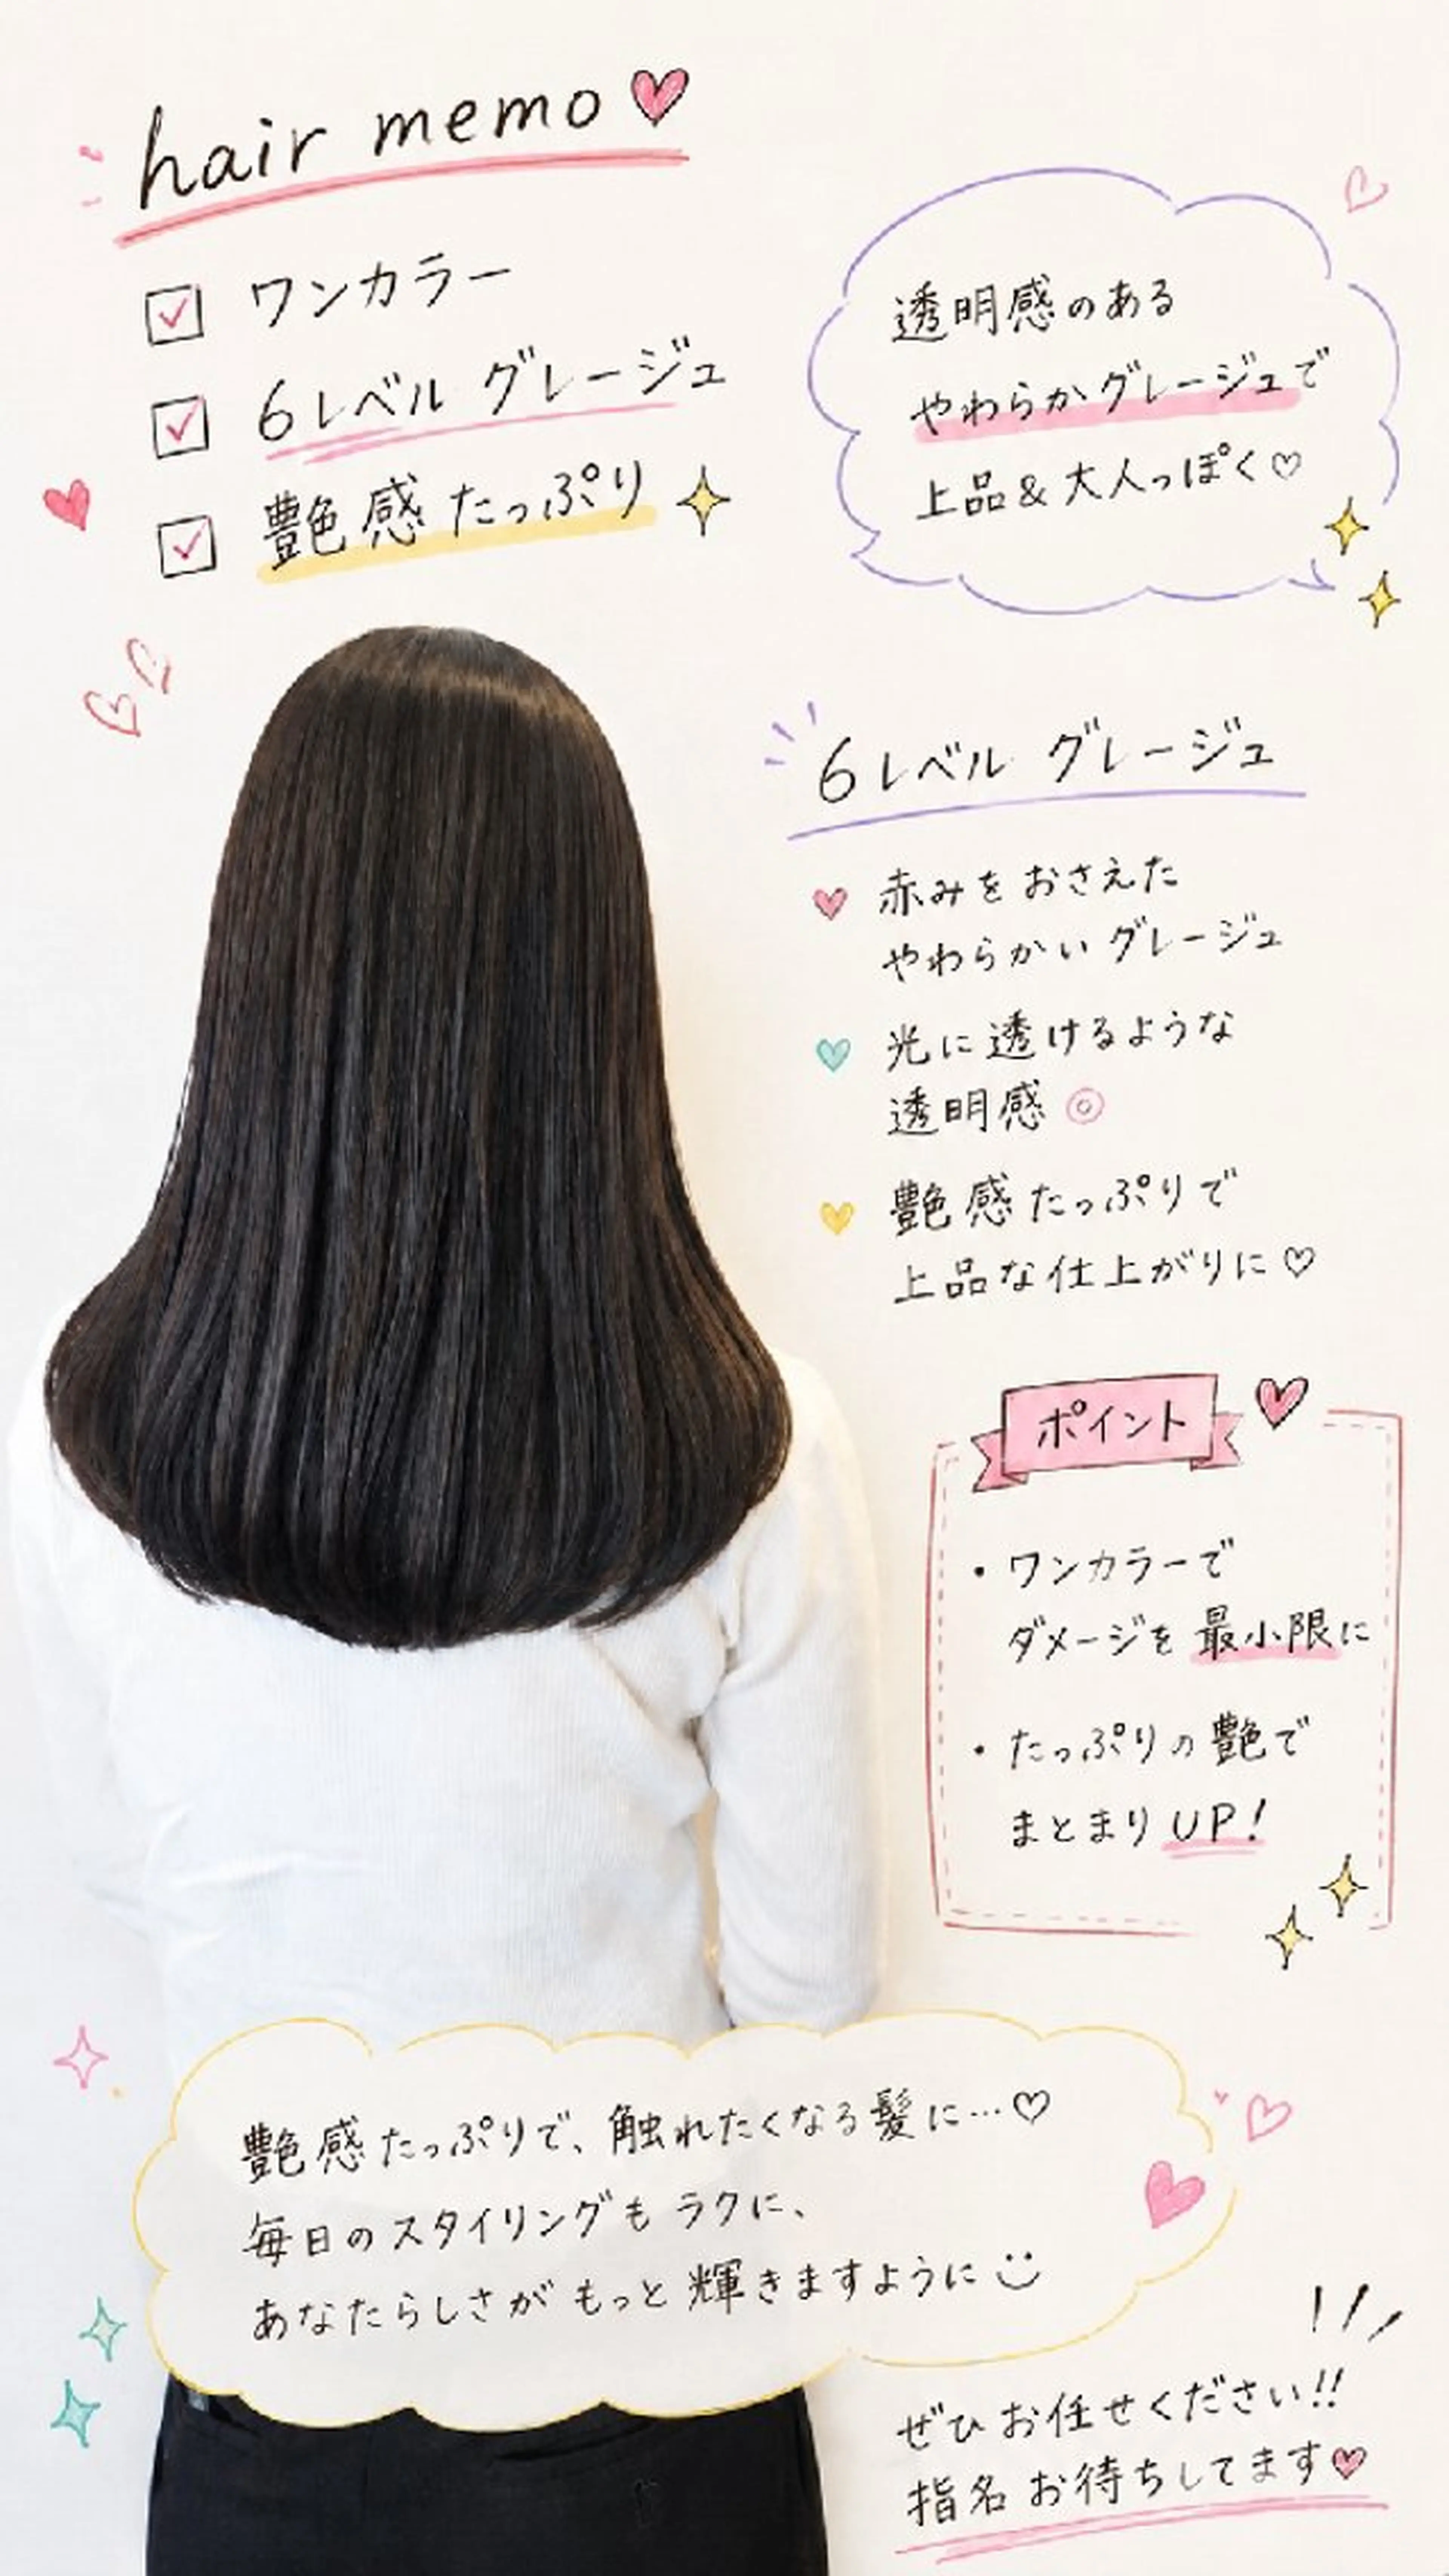 hair memo♥
☑ ワンカラー
☑ 6レベル グレージュ
☑ 艶感たっぷり
透明感のある
やわらかグレージュで
上品&大人っぽく♡
6レベル グレージュ
赤みをおさえた
やわらかいグレージュ
光に透けるような
透明感◎
艶感たっぷりで
上品な仕上がりに♡
ポイント
・ワンカラーで
ダメージを最小限に
・たっぷりの艶で
まとまりUP!
艶感たっぷりで、触れたくなる髪に…♡
毎日のスタイリングもラクに、
あなたらしさがもっと輝きますように
ぜひお任せください!!
指名お待ちしてます♥